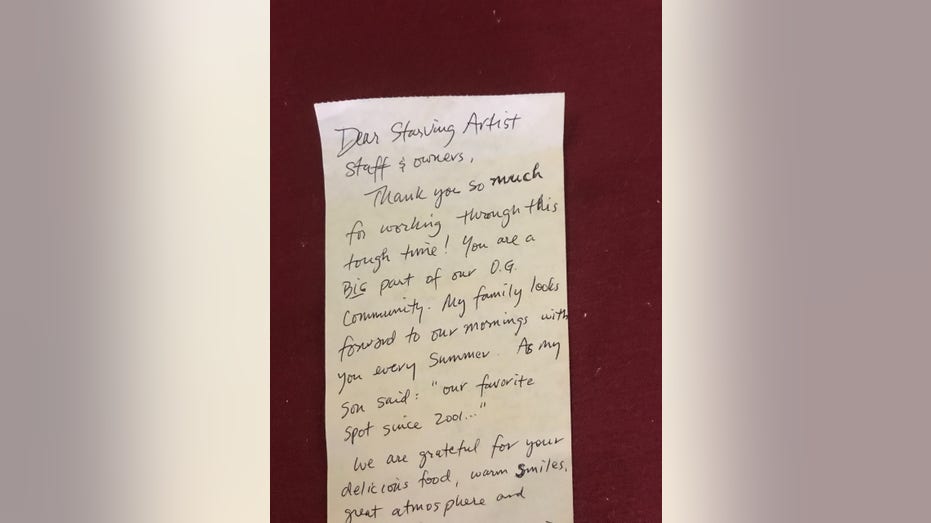 Dear Starving Artist
Staff & owners,
Thank you so much
for working through this
tough time! You are a
Big part of our O.G.
Community. My family looks
forward to our mornings with
you every Summer. As my
Son said: "our favorite
spot since 2001..."
We are grateful for your
delicious food, warm smiles,
great atmosphere and